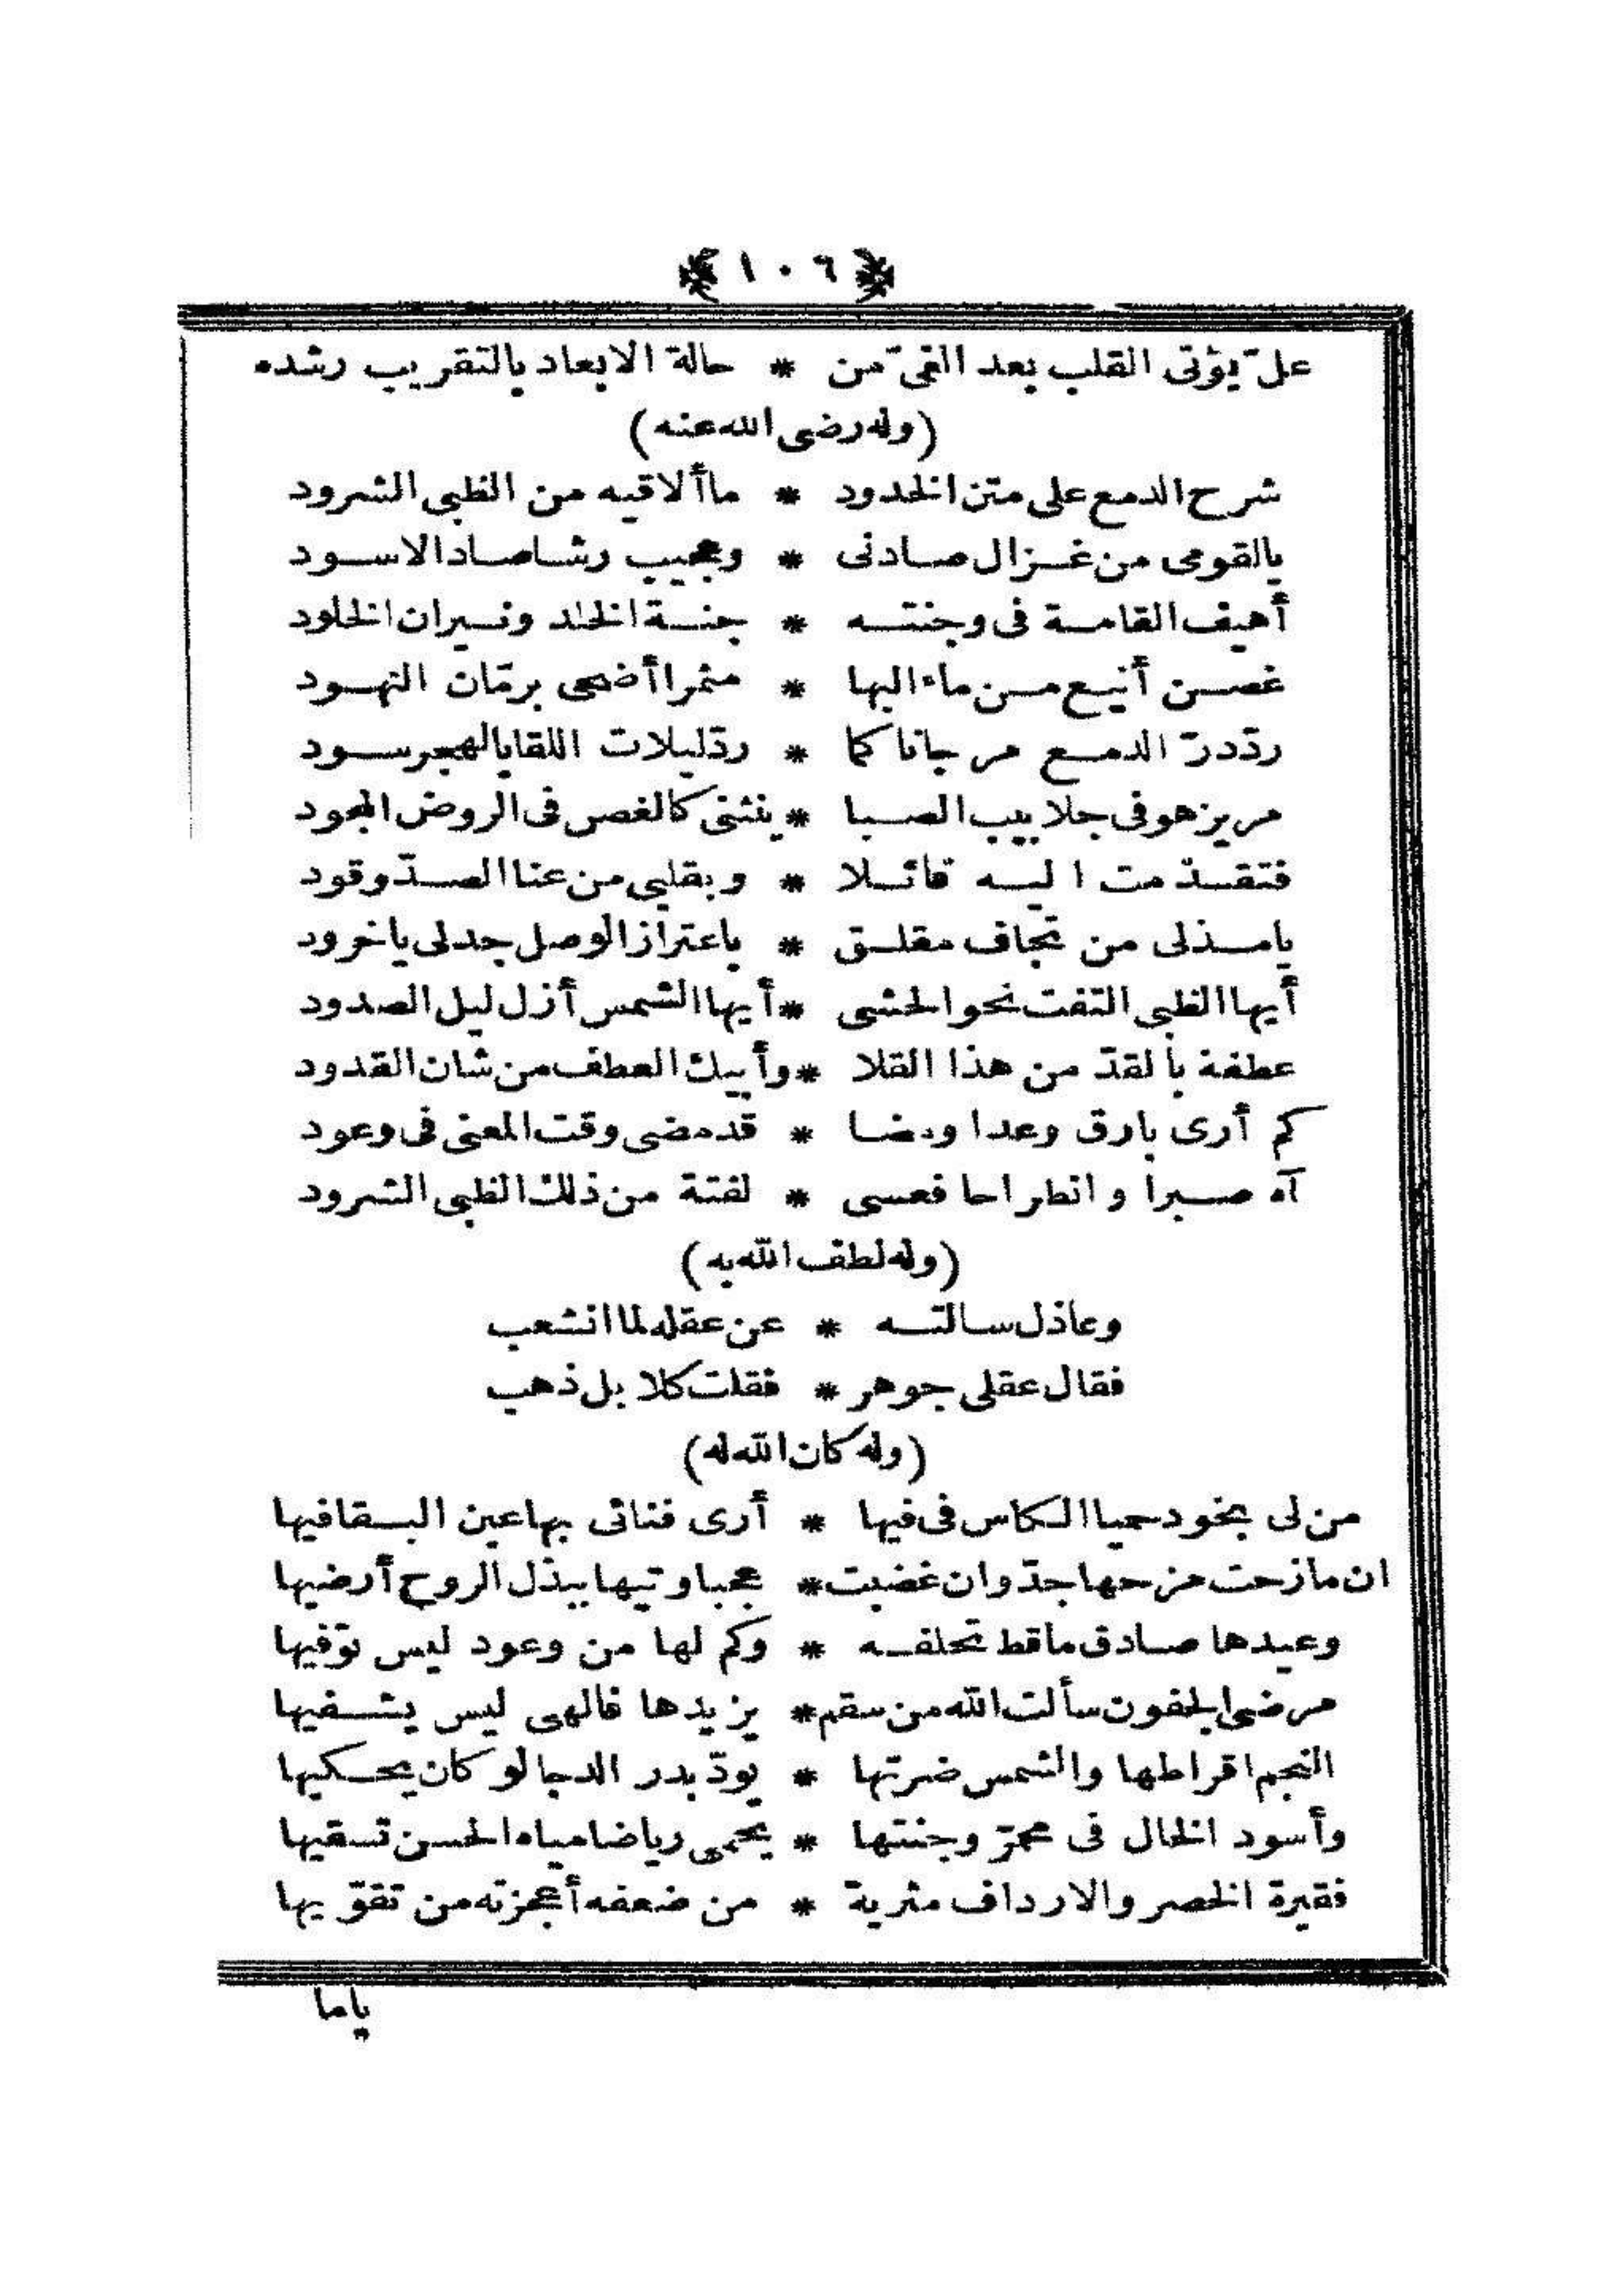 ﴿ ١٠٦ ﴾
علّ يؤتى القلب بعد الغىّ من * حالة الابعاد بالتقريب رشده
(وله رضى الله عنه)
شرح الدمع على متن الخدود * ما ألاقيه من الظبى الشرود
يالقومى من غزال صادنى * وعجيب رشا صاد الاسود
أهيف القامة فى وجنته * جنة الخلد ونيران الخلود
غصن أنيع من ماء البها * مثمرا أضحى برمّان النهود
ردّ درّ الدمع مرجانا كما * ردّ ليلات اللقا بالهجر سود
مر يزهو فى جلابيب الصبا * ينثنى كالغصن فى الروض المجود
فتقدّمت اليه قائلا * وبقلبى من عنا الصدّ وقود
يا مذلى من تجاف مقلق * باعتزاز الوصل جد لى يا خرود
أيها الظبى التفت نحو الحشى * أيها الشمس أزل ليل الصدود
عطفة بالقدّ من هذا القلا * وأبيك العطف من شان القدود
كم أرى بارق وعدا ومضا * قد مضى وقت المعنى فى وعود
آه صبرا وانطراحا فعسى * لفتة من ذلك الظبى الشرود
(وله لطف الله به)
وعاذل سالته * عن عقله لما انشعب
فقال عقلى جوهر * فقلت كلا بل ذهب
(وله كان الله له)
من لى بخود حميا الكاس فى فيها * أرى فنائى بها عين البقا فيها
ان مازحت مزحها جدّ وان غضبت * عجبا وتيها ببذل الروح أرضيها
وعيدها صادق ما قط تخلفه * وكم لها من وعود ليس توّفيها
مرضى الجفون سألت الله من سقم * يزيدها فالهى ليس يشفيها
النجم اقراطها والشمس ضرتها * يودّ بدر الدجا لو كان يحكيها
وأسود الخال فى محمرّ وجنتها * يحمى رياضا مياه الحسن تسقيها
فقيرة الخصر والارداف مثرية * من ضعفه أعجزته من تقوّيها
ياما